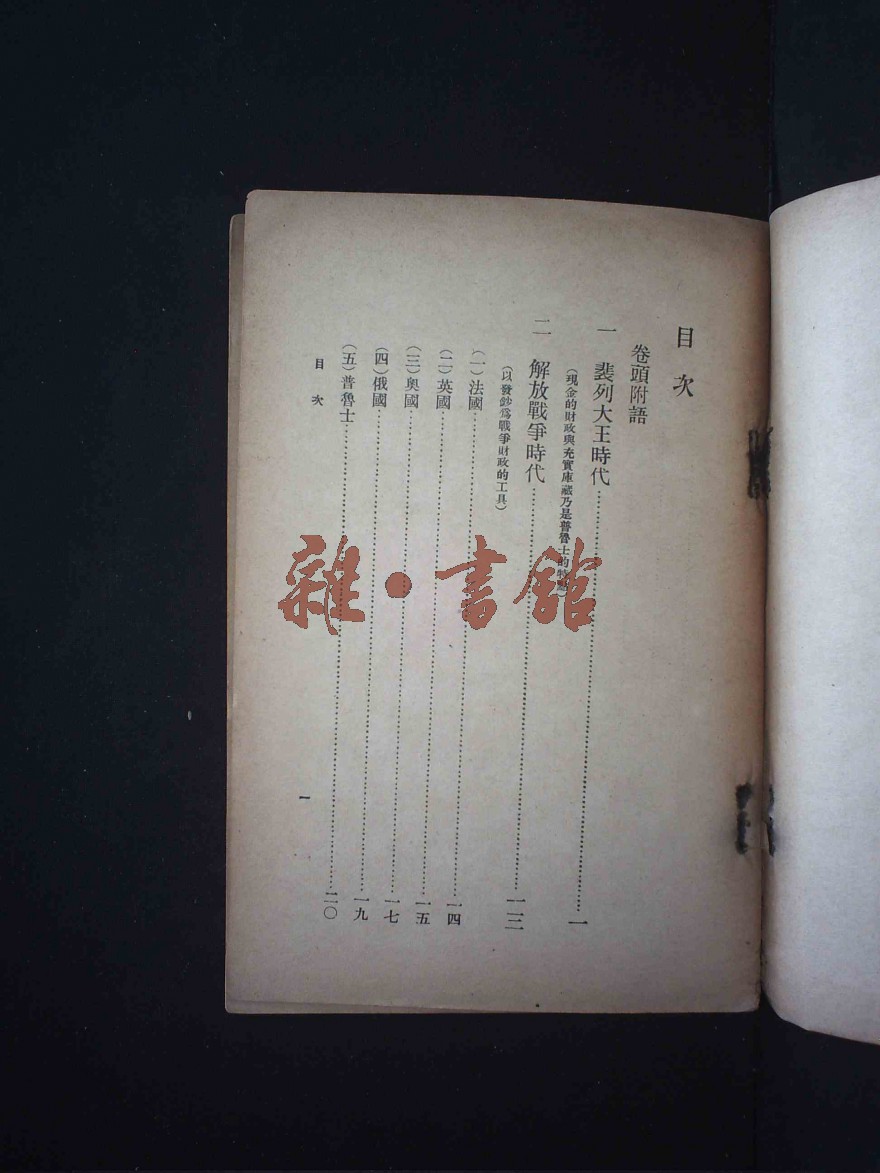 目次
卷頭附語
一 裴列大王時代……一
(現金的財政與充實庫藏乃是普魯士的特點)
二 解放戰爭時代……一三
(以發鈔爲戰爭財政的工具)
(一)法國……一四
(二)英國……一五
(三)奧國……一七
(四)俄國……一九
(五)普魯士……二〇
目次
一
雜·書館